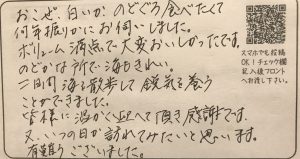 おこぜ、白いか、のどぐろ食べたくて
何年振りかにお伺いしました。
ボリューム満点で大変おいしかったです。
のどかな所で海もきれい。
二日間 海を散歩して 鋭気を養う
ことができました。
皆様に温かく迎へて頂き感謝です。
又、いつの日か訪れてみたいと思います。
有難うございました。
スマホでも投稿
OK!チェック欄
記入後フロント
へお渡し下さい。